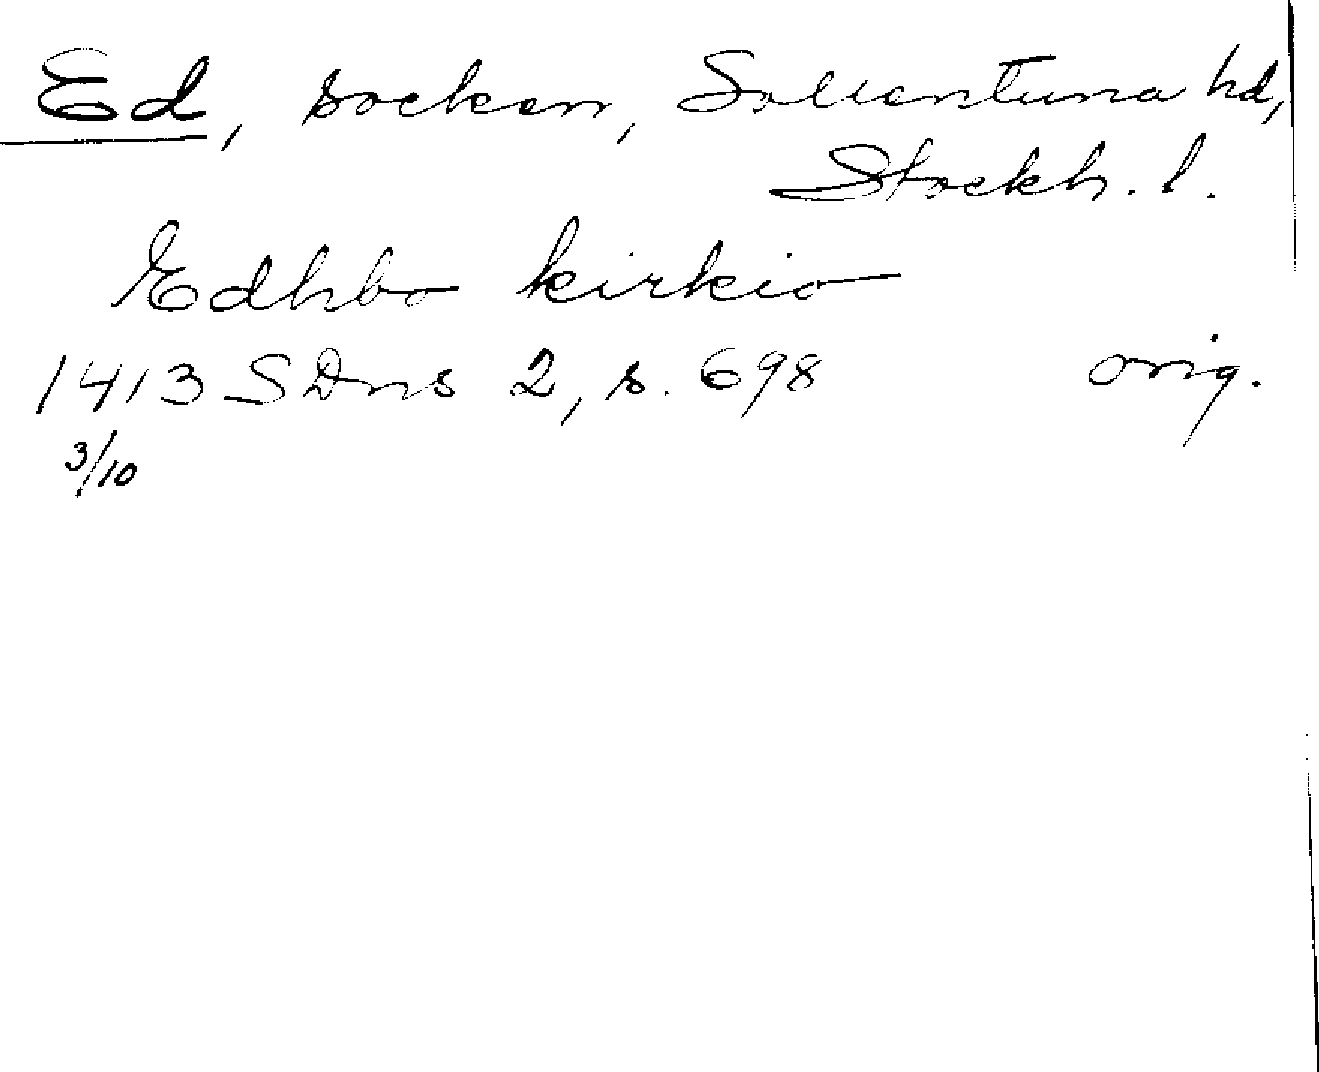 Ed, socken, Sollentuna hd,
Stockh. l.
Edhbo kirkio
1413 SDns 2, s. 698 orig.
3/10